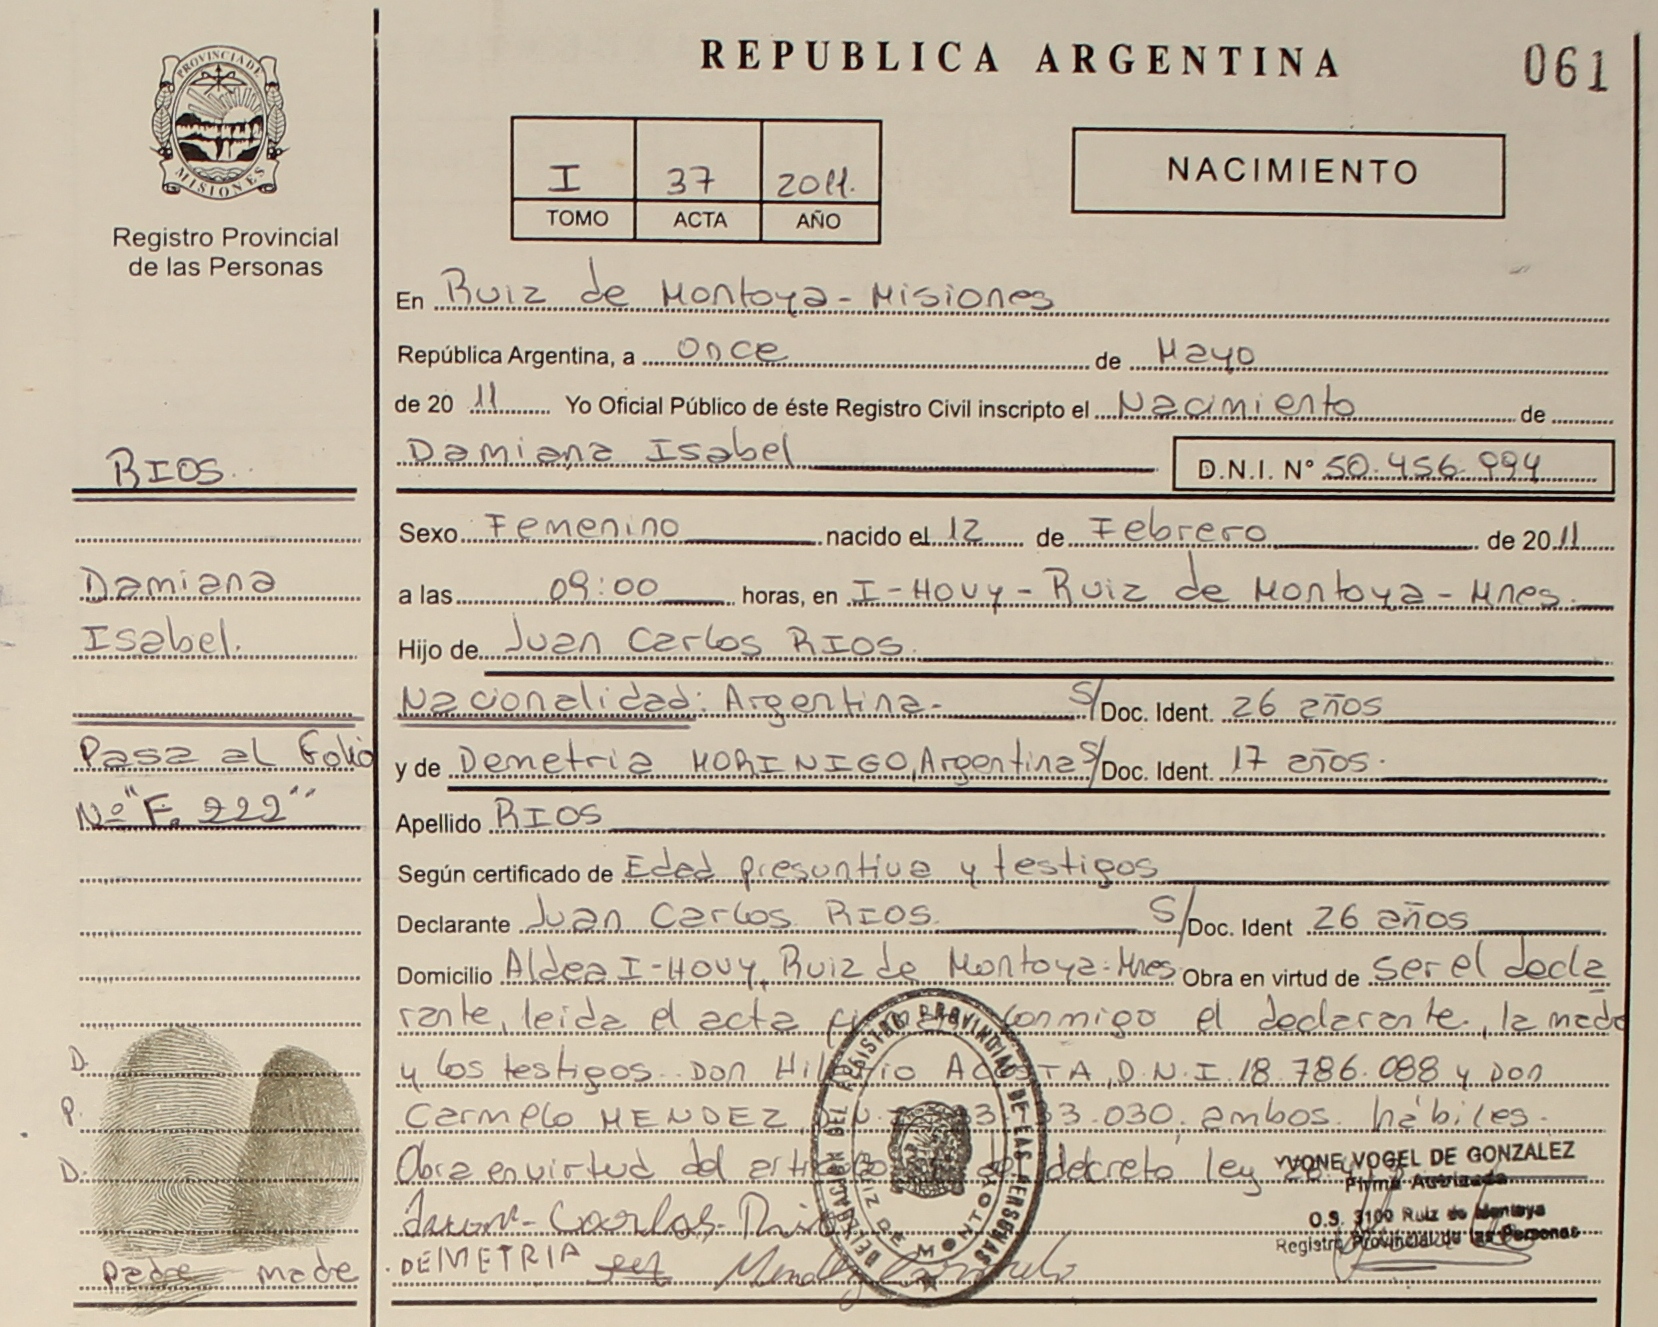 061
REPUBLICA ARGENTINA
PROVINCIA DE MISIONES
Registro Provincial
de las Personas
I 37 2011.
TOMO ACTA AÑO
NACIMIENTO
En Ruiz de Montoya - Misiones
República Argentina, a once de Mayo
de 20 11 Yo Oficial Público de éste Registro Civil inscripto el Nacimiento de
Damiana Isabel D.N.I. N° 50.456.994
Sexo Femenino nacido el 12 de Febrero de 20 11
a las 09:00 horas, en I-Hovy - Ruiz de Montoya - Mnes.
Hijo de Juan Carlos RIOS.
Nacionalidad: Argentina- S/Doc. Ident. 26 años
y de Demetria MORINIGO, Argentina S/Doc. Ident. 17 años.
Apellido RIOS
Según certificado de Edad presuntiva y testigos
Declarante Juan Carlos RIOS. S/Doc. Ident 26 años
Domicilio Aldea I-Hovy, Ruiz de Montoya-Mnes Obra en virtud de ser el decla
rante, leida el acta conmigo el declarante, la made
y los testigos Don D.N.I. 18.786.088 y Don
Carmelo MENDEZ, ambos hábiles.
Obra en virtud del decreto ley
Juan Carlos
DEMETRIA
RIOS.
Damiana
Isabel.
Pasa al Folio
Nº "F. 222"
D.
P.
D.
Padre made
DELEGACION DEL REGISTRO PROVINCIAL DE LAS PERSONAS
RUIZ DE MONTOYA
YVONE VOGEL DE GONZALEZ
Firma Autorizada
O.S. 3100 Ruiz de Montoya
Registro Provincial de las Personas